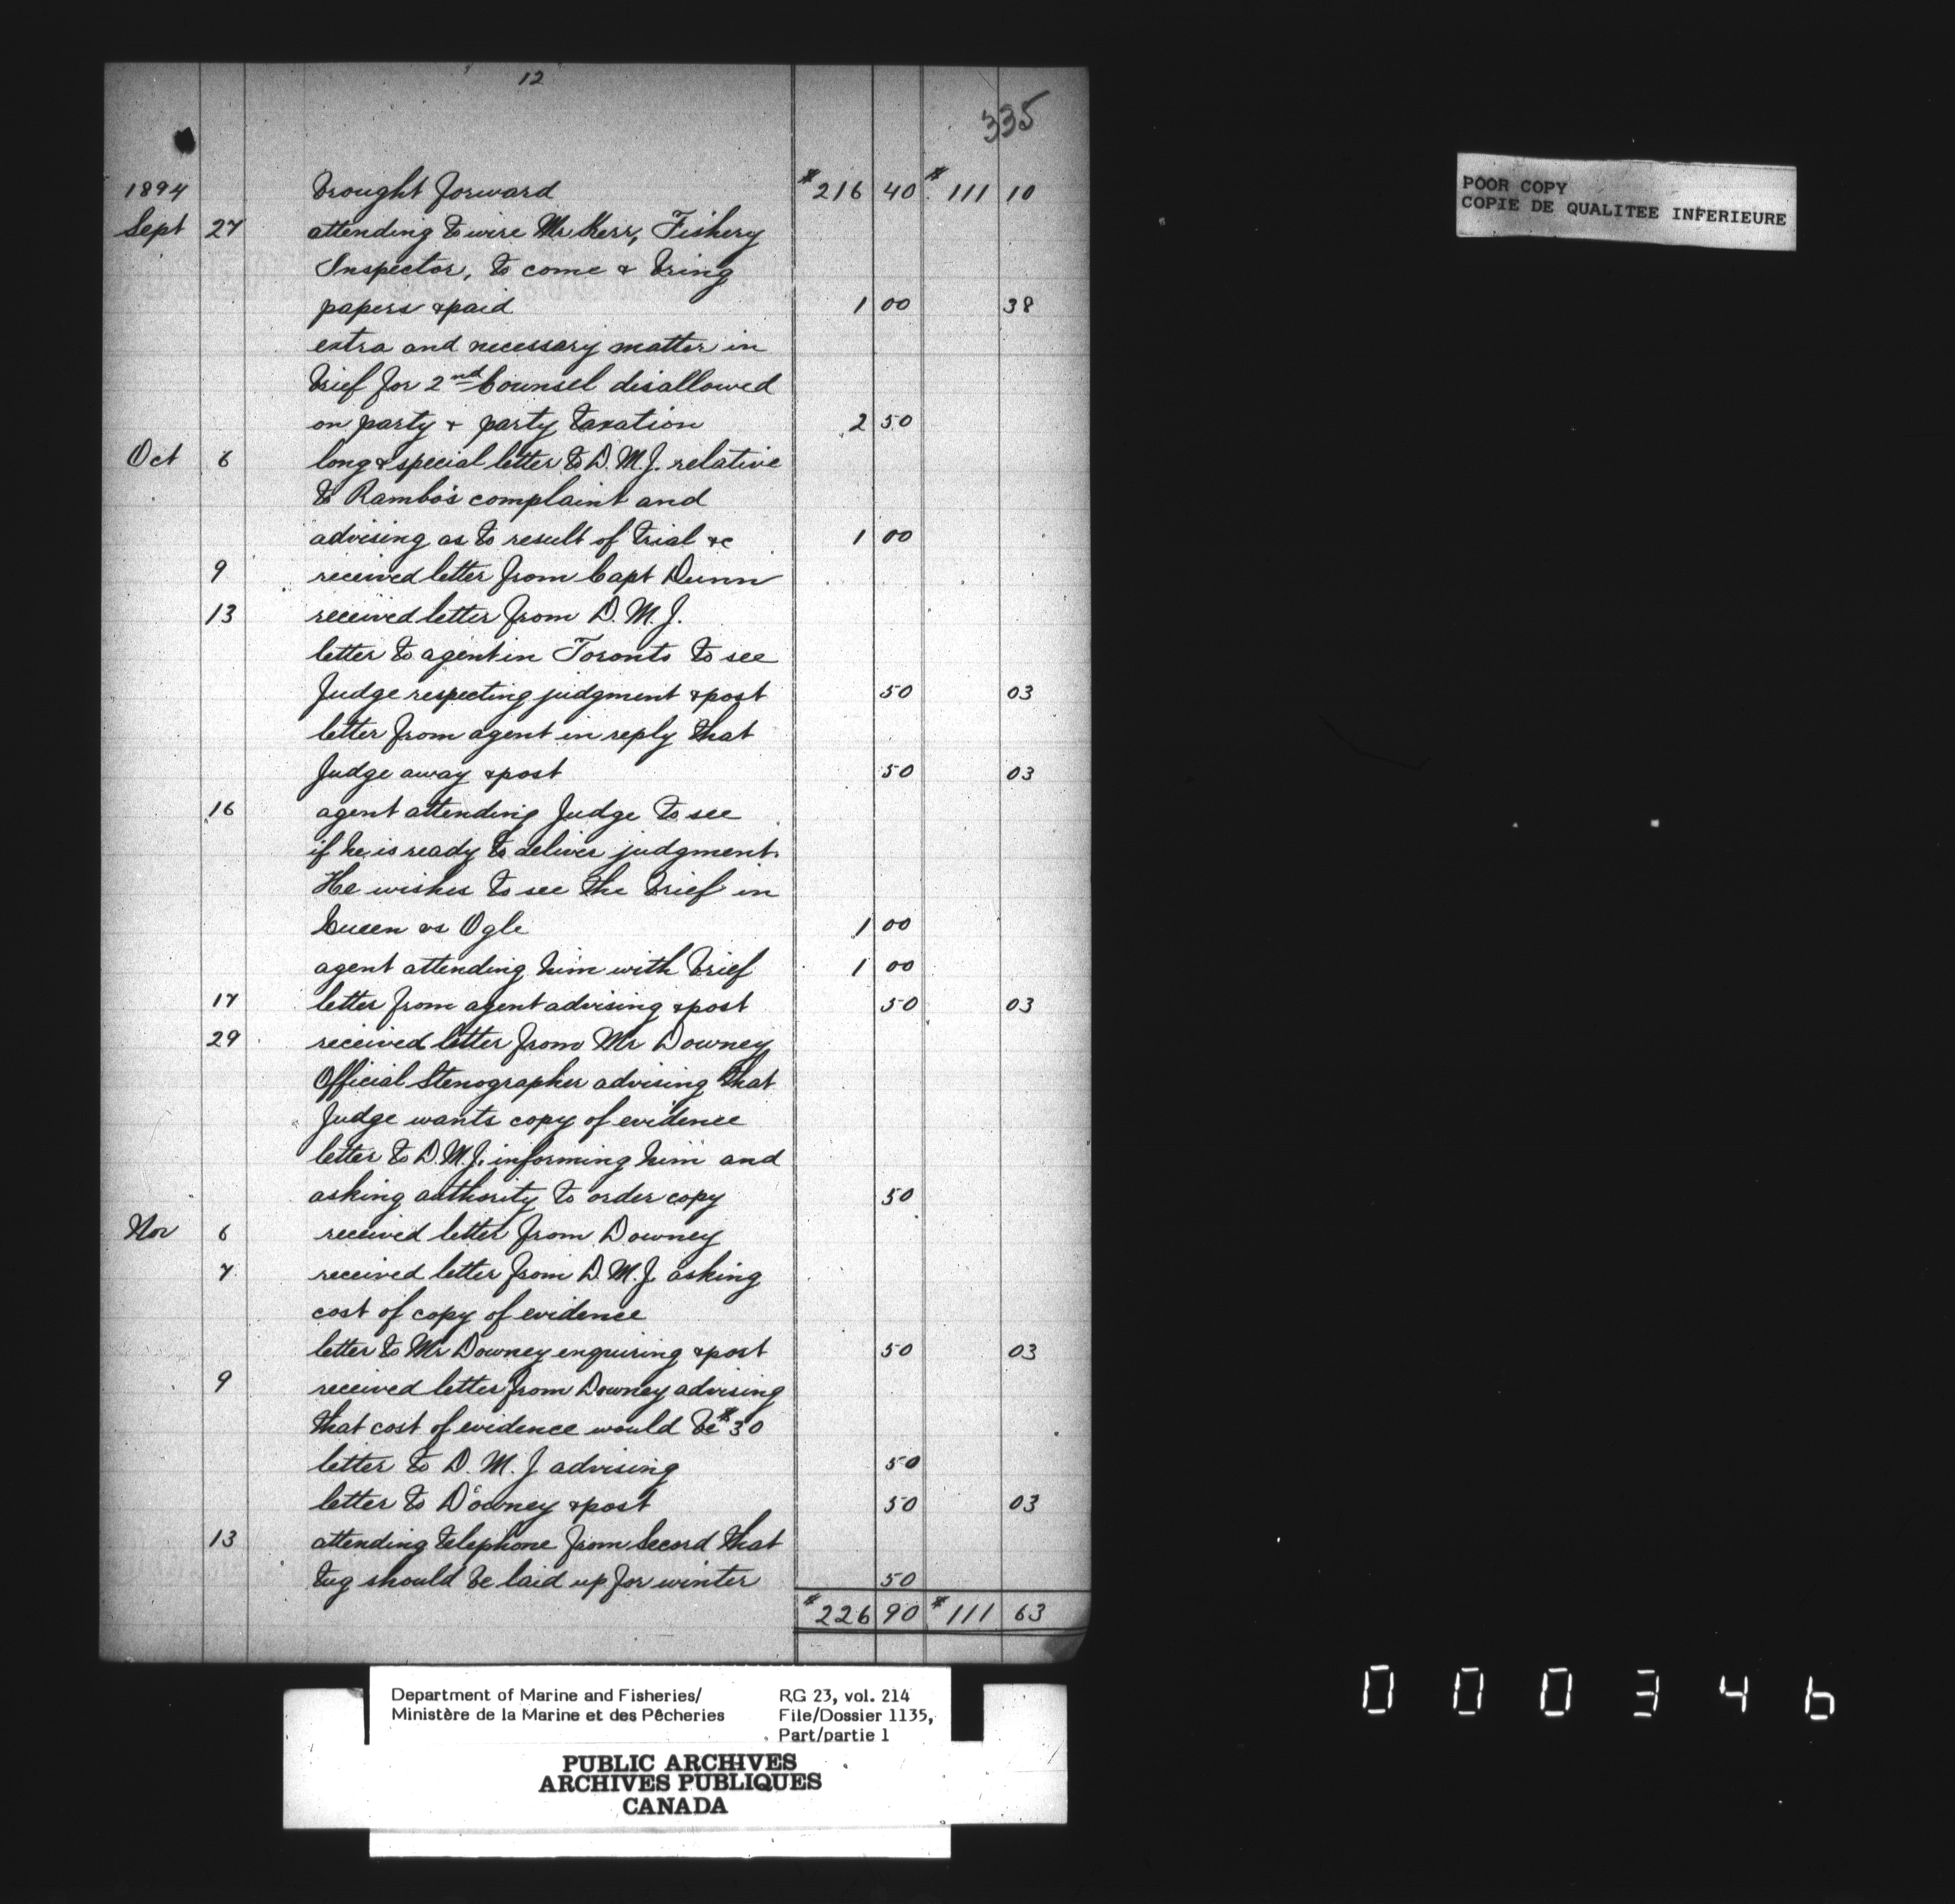 12
335
1894 brought forward $216 40 $111 10
Sept 27 attending to wire Mr Kerr, Fishery
Inspector, to come & bring
papers & paid 1 00 38
extra and necessary matter in
brief for 2nd Counsel disallowed
on party & party taxation 2 50
Oct 6 long & special letter to D.M.J. relative
to Rambo's complaint and
advising as to result of trial &c 1 00
9 received letter from Capt Dunn
13 received letter from D.M.J.
letter to agent in Toronto to see
Judge respecting judgment & post 50 03
letter from agent in reply that
Judge away & post 50 03
16 agent attending Judge to see
if he is ready to deliver judgment.
He wishes to see the brief in
Queen vs Ogle 1 00
agent attending him with brief 1 00
17 letter from agent advising & post 50 03
29 received letter from Mr Downey
Official Stenographer advising that
Judge wants copy of evidence
letter to D.M.J. informing him and
asking authority to order copy 50
Nov 6 received letter from Downey
7 received letter from D.M.J. asking
cost of copy of evidence
letter to Mr Downey enquiring & post 50 03
9 received letter from Downey advising
that cost of evidence would be $30
letter to D.M.J advising 50
letter to Downey & post 50 03
13 attending telephone from Secord that
tug should be laid up for winter 50
$226 90 $111 63
POOR COPY
COPIE DE QUALITEE INFERIEURE
Department of Marine and Fisheries/
Ministère de la Marine et des Pêcheries
RG 23, vol. 214
File/Dossier 1135,
Part/partie 1
PUBLIC ARCHIVES
ARCHIVES PUBLIQUES
CANADA
000346